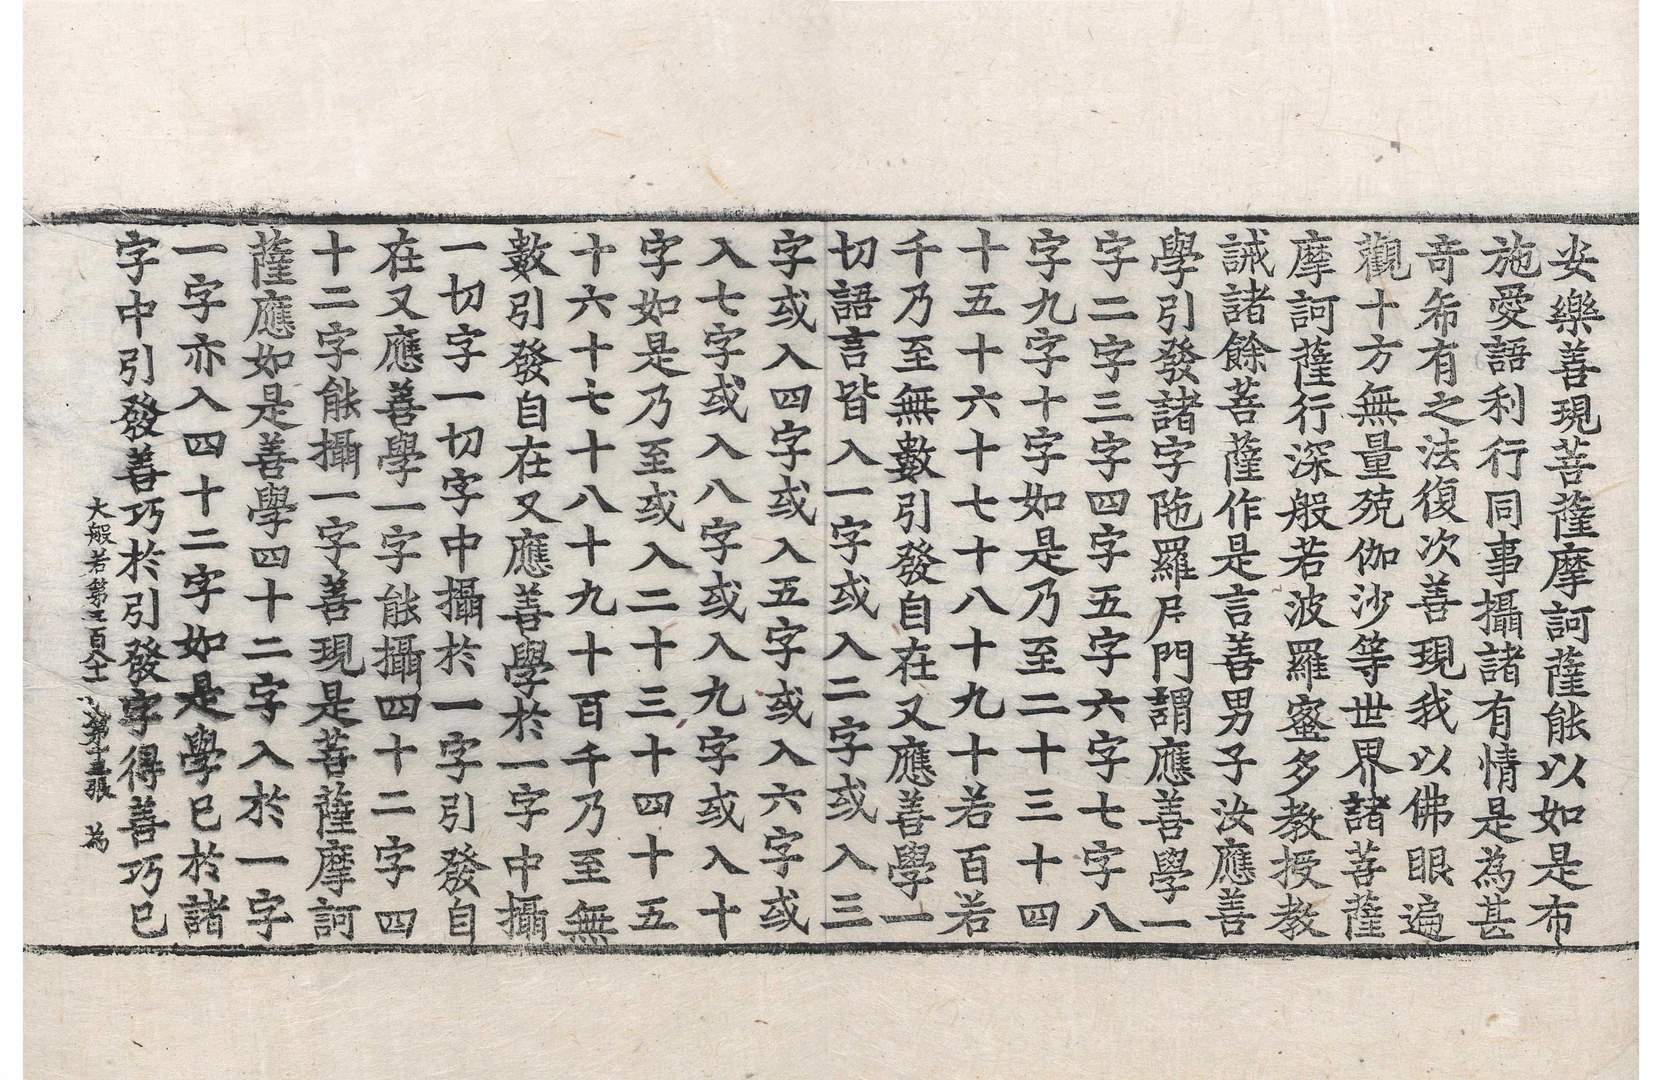 安樂善現菩薩摩訶薩能以如是布
施愛語利行同事攝諸有情是為甚
奇希有之法復次善現我以佛眼遍
觀十方無量殑伽沙等世界諸菩薩
摩訶薩行深般若波羅蜜多教授教
誡諸餘菩薩作是言善男子汝應善
學引發諸字陁羅尼門謂應善學一
字二字三字四字五字六字七字八
字九字十字如是乃至二十三十四
十五十六十七十八十九十若百若
千乃至無數引發自在又應善學一
切語言皆入一字或入二字或入三
字或入四字或入五字或入六字或
入七字或入八字或入九字或入十
字如是乃至或入二十三十四十五
十六十七十八十九十百千乃至無
數引發自在又應善學於一字中攝
一切字一切字中攝於一字引發自
在又應善學一字能攝四十二字四
十二字能攝一字善現是菩薩摩訶
薩應如是善學四十二字入於一字
一字亦入四十二字如是學已於諸
字中引發善巧於引發字得善巧已
大般若第三百八十一 第 張 為